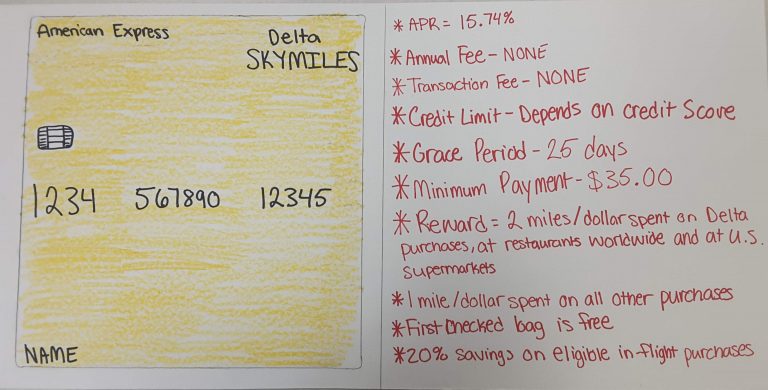 American Express
Delta
SKYMILES
1234 567890 12345
NAME
* APR = 15.74%
* Annual Fee - NONE
* Transaction Fee - NONE
* Credit Limit - Depends on credit Score
* Grace Period - 25 days
* Minimum Payment - $35.00
* Reward = 2 miles/dollar spent on Delta
purchases, at restaurants worldwide and at U.S.
supermarkets
* 1 mile/dollar spent on all other purchases
* First checked bag is free
* 20% savings on eligible in-flight purchases